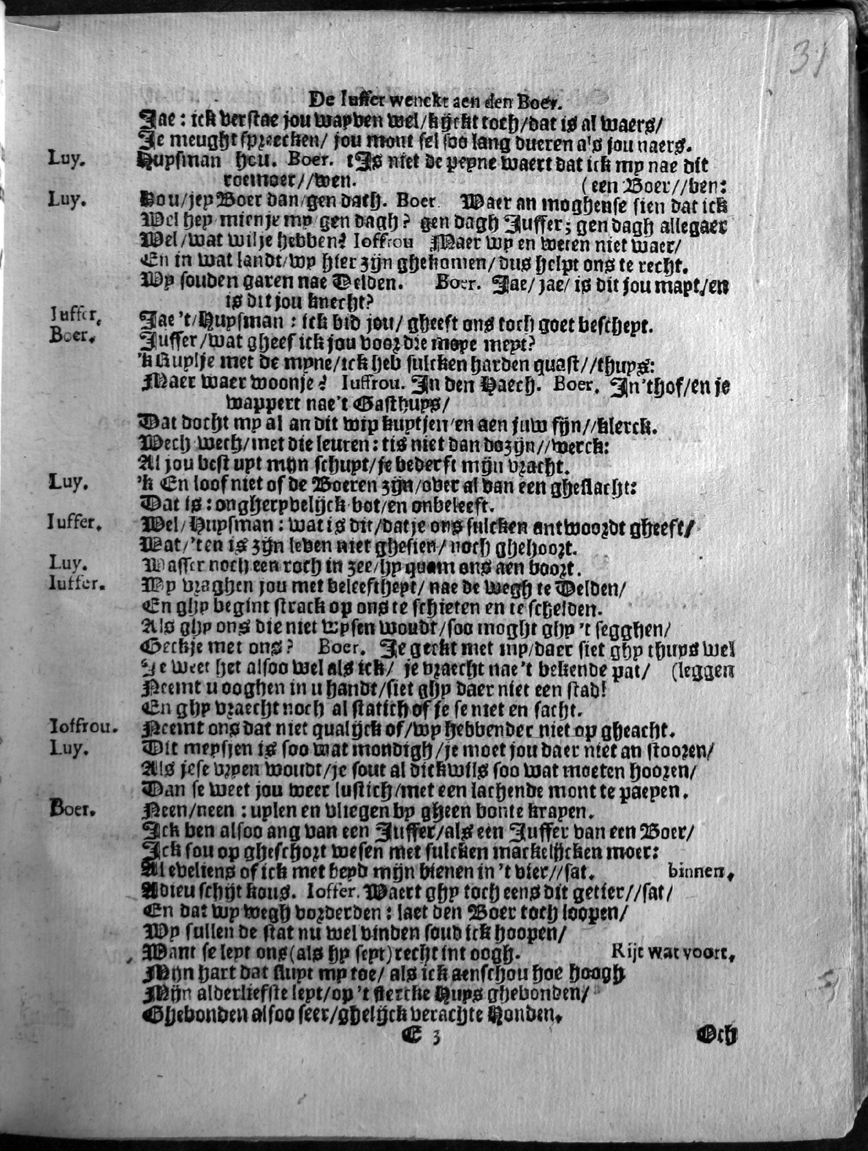 31
De Iuffer wenckt aen den Boer.
Jae : ick verstae jou wayven wel/kijckt toch/dat is al waers/
Je meught spreecken/ jou mont sel soo lang dueren als jou naers.
Luy. Huysman heu. Boer. tIs niet de peyne waert dat ick my nae dit
roemoer//wen. (een Boer//ben:
Luy. Hou/jey Boer dan/gen dach. Boer. Waer an moghense sien dat ick
Wel hey mien je my gen dagh? gen dagh Juffer; gen dagh allegaer
Wel/wat wilje hebben? Ioffrou Maer wy en weten niet waer/
En in wat landt/wy hier zijn ghekomen/dus helpt ons te recht.
Wy souden garen nae Delden. Boer. Jae/ jae/ is dit jou mayt/en
is dit jou knecht?
Iuffer. Jae 't/Huysman : ick bid jou/ gheeft ons toch goet bescheyt.
Boer. Juffer/wat gheef ick jou voor die moye meyt?
'k Ruylje met de myne/ick heb sulcken harden quast//thuys:
Maer waer woonje? Iuffrou. In den Haech. Boer. In'thof/en je
wappert nae't Gasthuys/
Dat docht my al an dit wip kuytjen/en aen juw fijn//klerck.
Wech wech/met die leuren: tis niet dan dozijn//werck:
Al jou best uyt mijn schuyt/je bederft mijn vracht.
Luy. 'k En loof niet of de Boeren zijn/over al van een gheslacht:
Dat is : ongheryvelijck bot/en onbeleeft.
Iuffer. Wel/Huysman: wat is dit/datje ons sulcken antwoordt gheeft/
Wat/'ten is zijn leven niet ghesien/noch ghehoort.
Luy. Wasser noch een roch in zee/hy quam ons aen boort.
Iuffer. Wy vraghen jou met beleeftheyt/ nae de wegh te Delden/
En ghy begint strack op ons te schieten en te schelden.
Als ghy ons die niet wysen woudt/soo moght ghy 't segghen/
Geckje met ons? Boer. Je geckt met my/daer siet ghy thuys wel
Je weet het alsoo wel als ick/ je vraecht nae't bekende pat/ (leggen
Neemt u ooghen in u handt/siet ghy daer niet een stad!
En ghy vraecht noch al statich of je se niet en sacht.
Ioffrou. Neemt ons dat niet qualijck of/wy hebbender niet op gheacht.
Luy. Dit meysjen is soo wat mondigh/je moet jou daer niet an stooren/
Als jese vryen woudt/je sout al dickwils soo wat moeten hooren/
Dan se weet jou weer lustich/met een lachende mont te paeyen.
Boer. Neen/neen : uylen en vliegen by gheen bonte krayen.
Ick ben alsoo ang van een Juffer/als een Juffer van een Boer/
Ick sou op gheschort wesen met sulcken mackelijcken moer:
Al eveliens of ick met beyd mijn bienen in 't vier//sat. binnen.
Adieu schijt kous. Ioffer. Waert ghy toch eens dit getier//sat/
En dat wy wegh vorderden : laet den Boer toch loopen/
Wy sullen de stat nu wel vinden soud ick hoopen/
Want se leyt ons(als hy seyt)recht int oogh. Rijt wat voort.
Mijn hart dat sluyt my toe/ als ick aenschou hoe hoogh
Mijn alderliefste leyt/op 't stercke Huys ghebonden/
Ghebonden alsoo seer/ghelijck verachte Honden.
E 3 Och